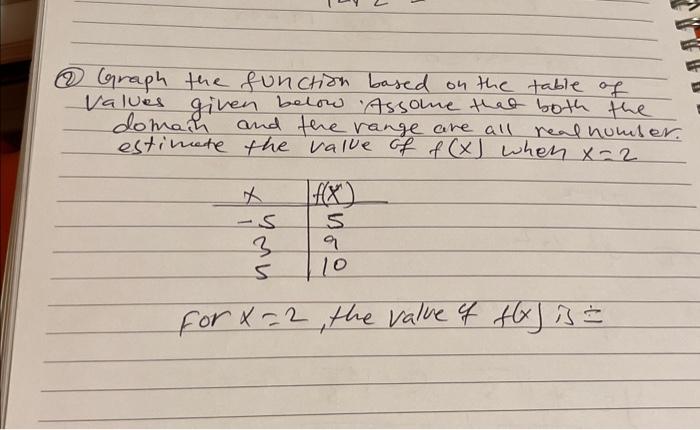 ② Graph the function based on the table of
values given below. Assome that both the
domain and the range are all real number.
estimate the value of f(x) when x=2
x f(x)
-5 5
3 9
5 10
For x=2, the value of f(x) is ≐